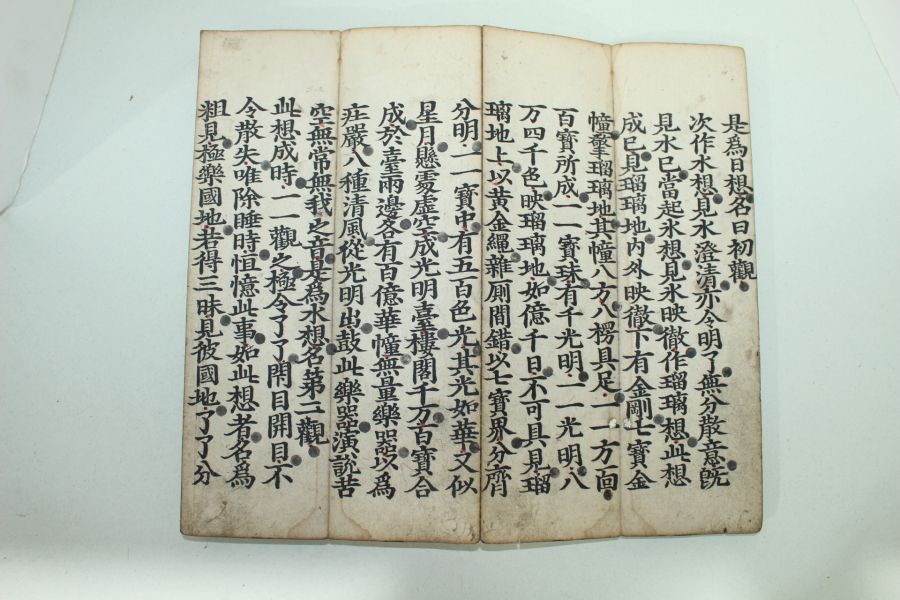 是為日想名曰初觀
次作水想見水澄清亦令明了無分散意既
見水已當起氷想見氷映徹作瑠璃想此想
成已見瑠璃地內外映徹下有金剛七寶金
幢擎瑠璃地其幢八方八楞具足一一方面
百寶所成一一寶珠有千光明一一光明八
万四千色映瑠璃地如億千日不可具見瑠
璃地上以黃金繩雜厠間錯以七寶界分齊
分明一一寶中有五百色光其光如華又似
星月懸處虛空成光明臺樓閣千万百寶合
成於臺兩邊各有百億華幢無量樂器以為
莊嚴八種清風從光明出鼓此樂器演說苦
空無常無我之音是為水想名第二觀
此想成時一一觀之極令了了閇目開目不
令散失唯除睡時恒憶此事如此想者名為
粗見極樂國地若得三昧見彼國地了了分